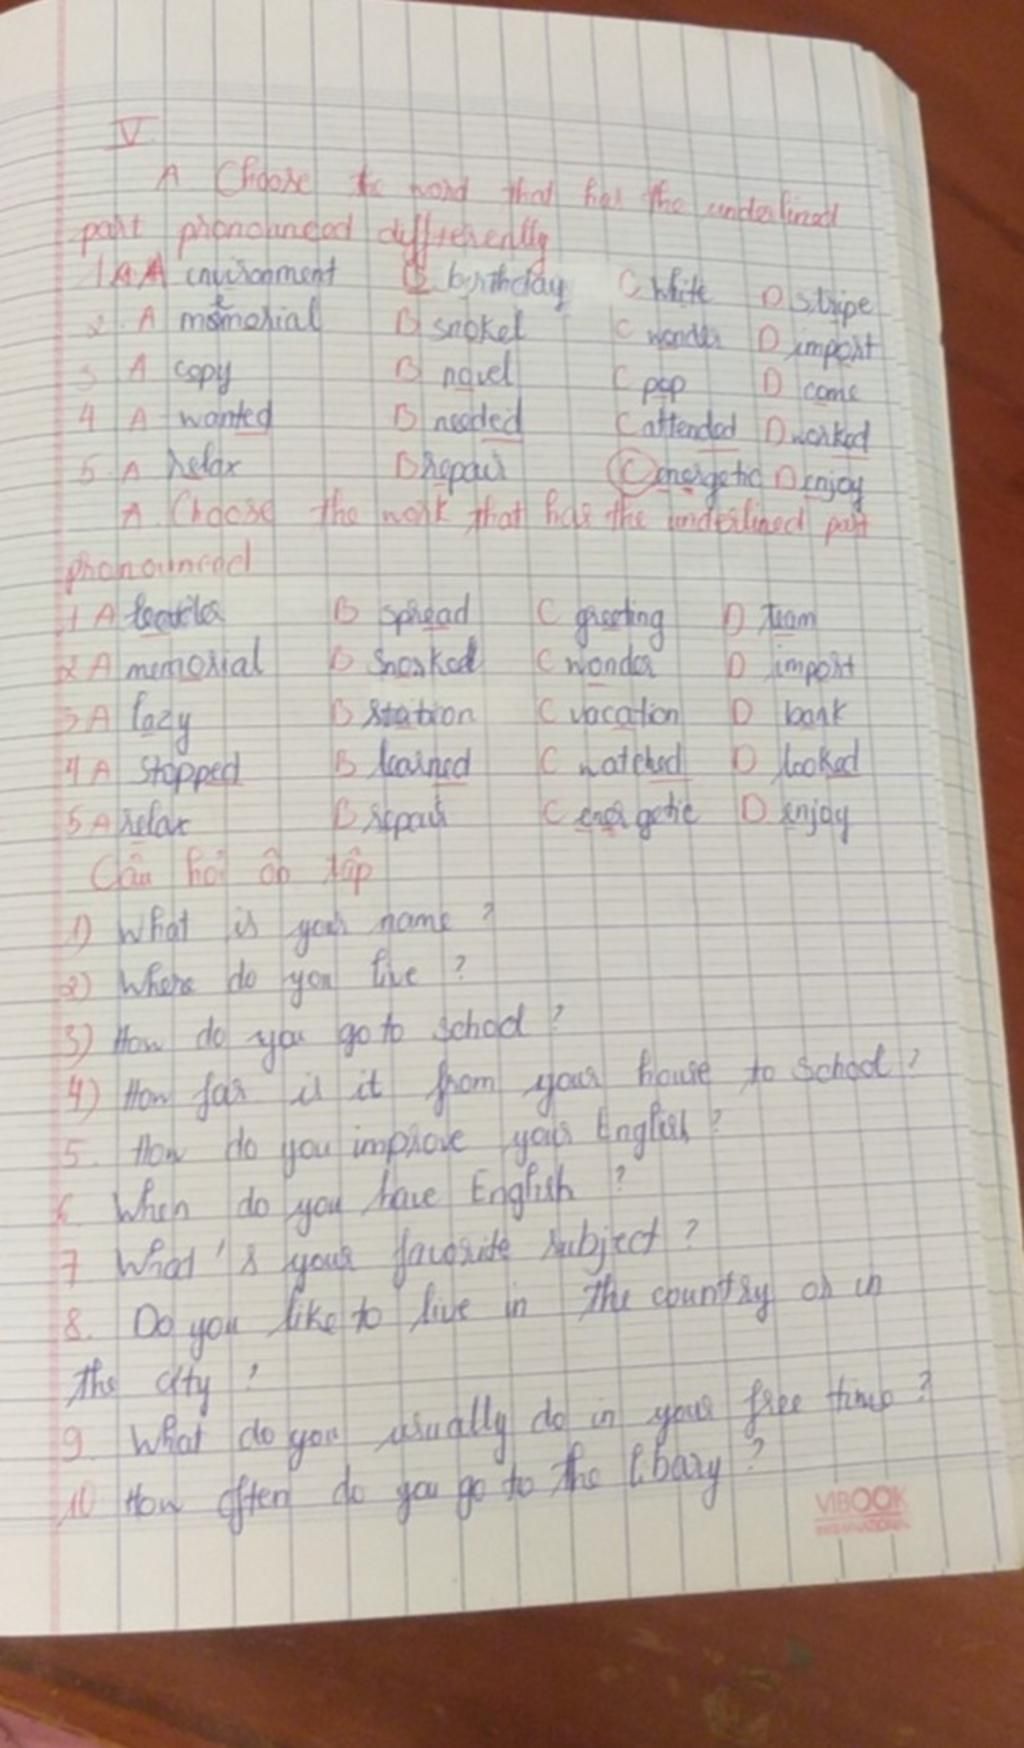 V
A Choose the word that has the underlined
part pronounced differently
1 A environment B birthday C White D stripe
2. A memorial B snokel C wonder D import
3 A copy B novel C pop D come
4 A wanted B needed C attended D worked
5 A relax B repair C energetic D enjoy
A. Choose the work that has the underlined part
pronounced
1 A B spread C greeting D team
2 A memorial B C wonder D import
3 A lazy B station C vacation D bank
4 A Stopped B learned C watched D looked
5 A relax B repair C energetic D enjoy
Câu hỏi ôn tập
1) What is your name ?
2) Where do you live ?
3) How do you go to school ?
4) How far is it from your house to school ?
5. How do you improve your English ?
6. When do you have English ?
7 What's your favorite subject ?
8. Do you like to live in the country or in
the city ?
9. What do you usually do in your free time ?
10 How often do you go to the libary ?
VIBOOK